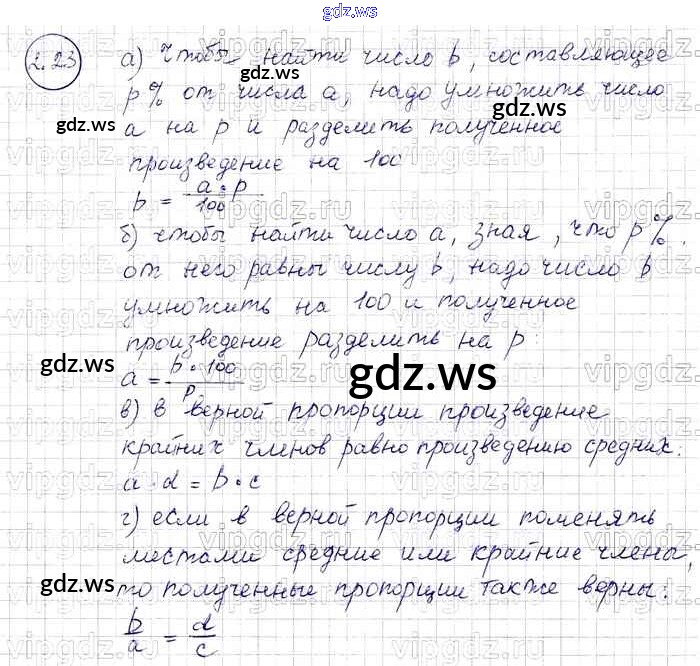 gdz.ws
2.23
а) чтобы найти число b, составляющее
p% от числа a, надо умножить число
a на p и разделить полученное
произведение на 100
b = a·p / 100
б) чтобы найти число a, зная, что p%
от него равны числу b, надо число b
умножить на 100 и полученное
произведение разделить на p:
a = b·100 / p
в) в верной пропорции произведение
крайних членов равно произведению средних.
a·d = b·c
г) если в верной пропорции поменять
местами средние или крайние члены,
то полученные пропорции также верны.
b/a = d/c
gdz.ws
gdz.ws
gdz.ws
gdz.ws
gdz.ws
gdz.ws
gdz.ws
gdz.ws
vipgdz.ru